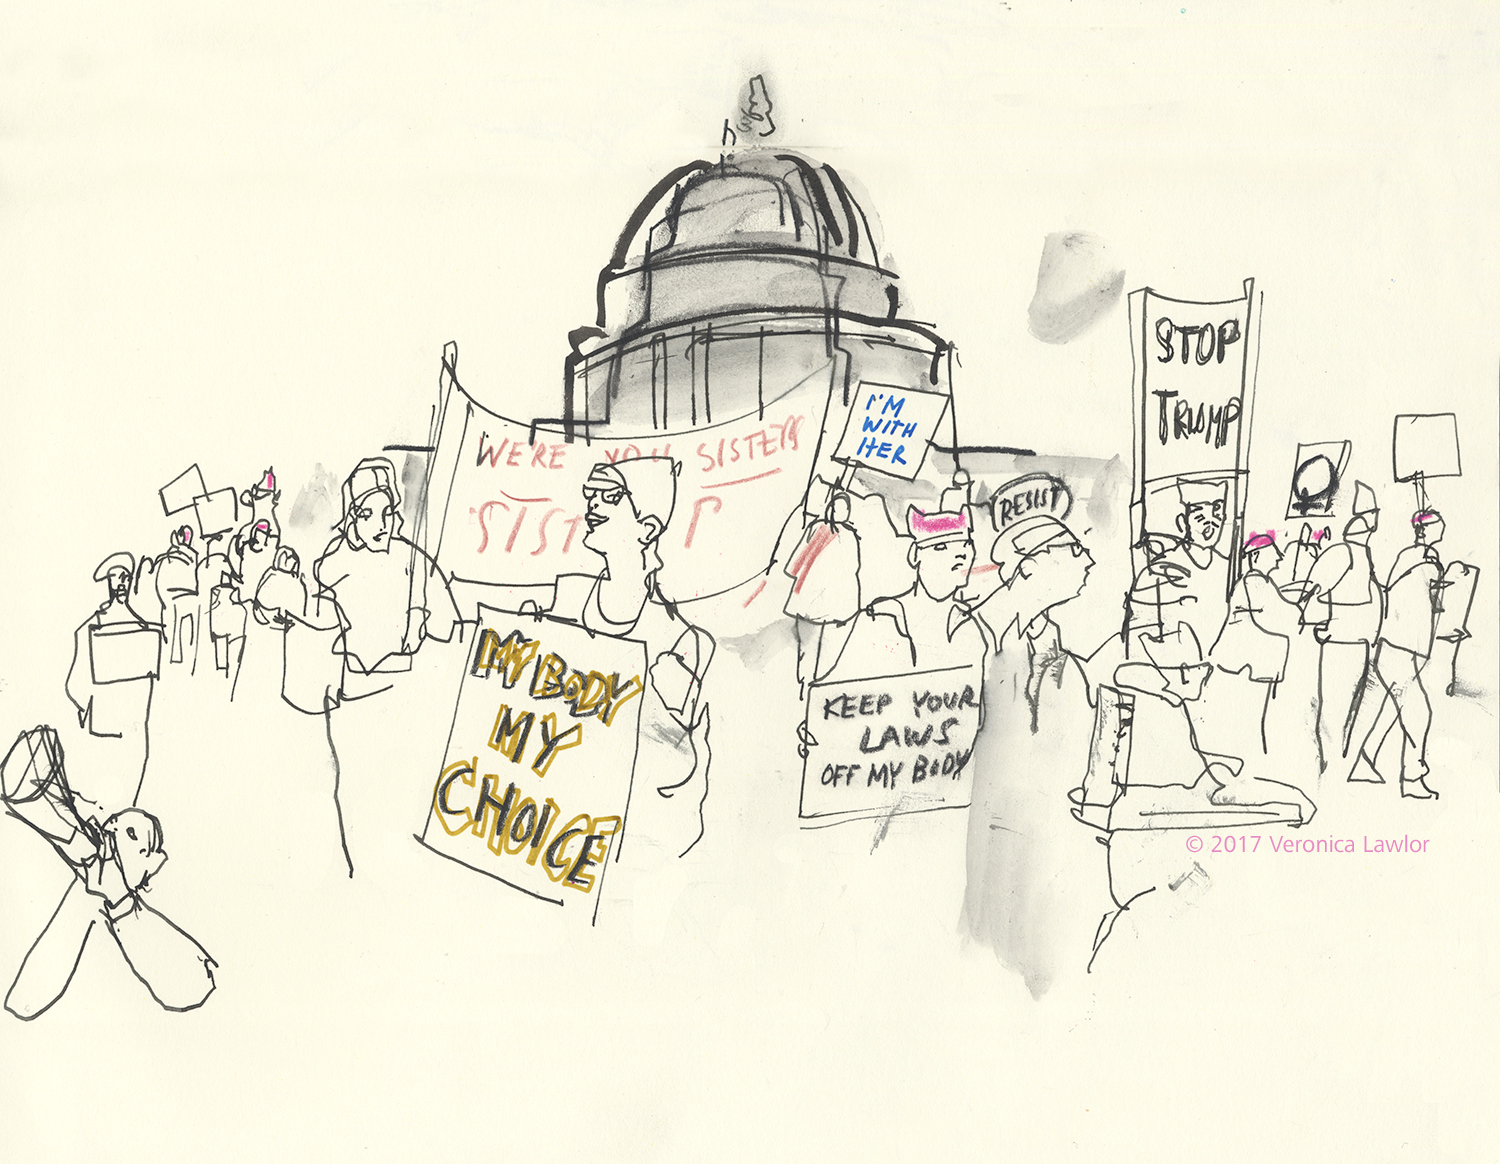 WE'RE YOU SISTERS
SIST
I'M
WITH
HER
RESIST
STOP
TRUMP
MY BODY
MY
CHOICE
KEEP YOUR
LAWS
OFF MY BODY
© 2017 Veronica Lawlor